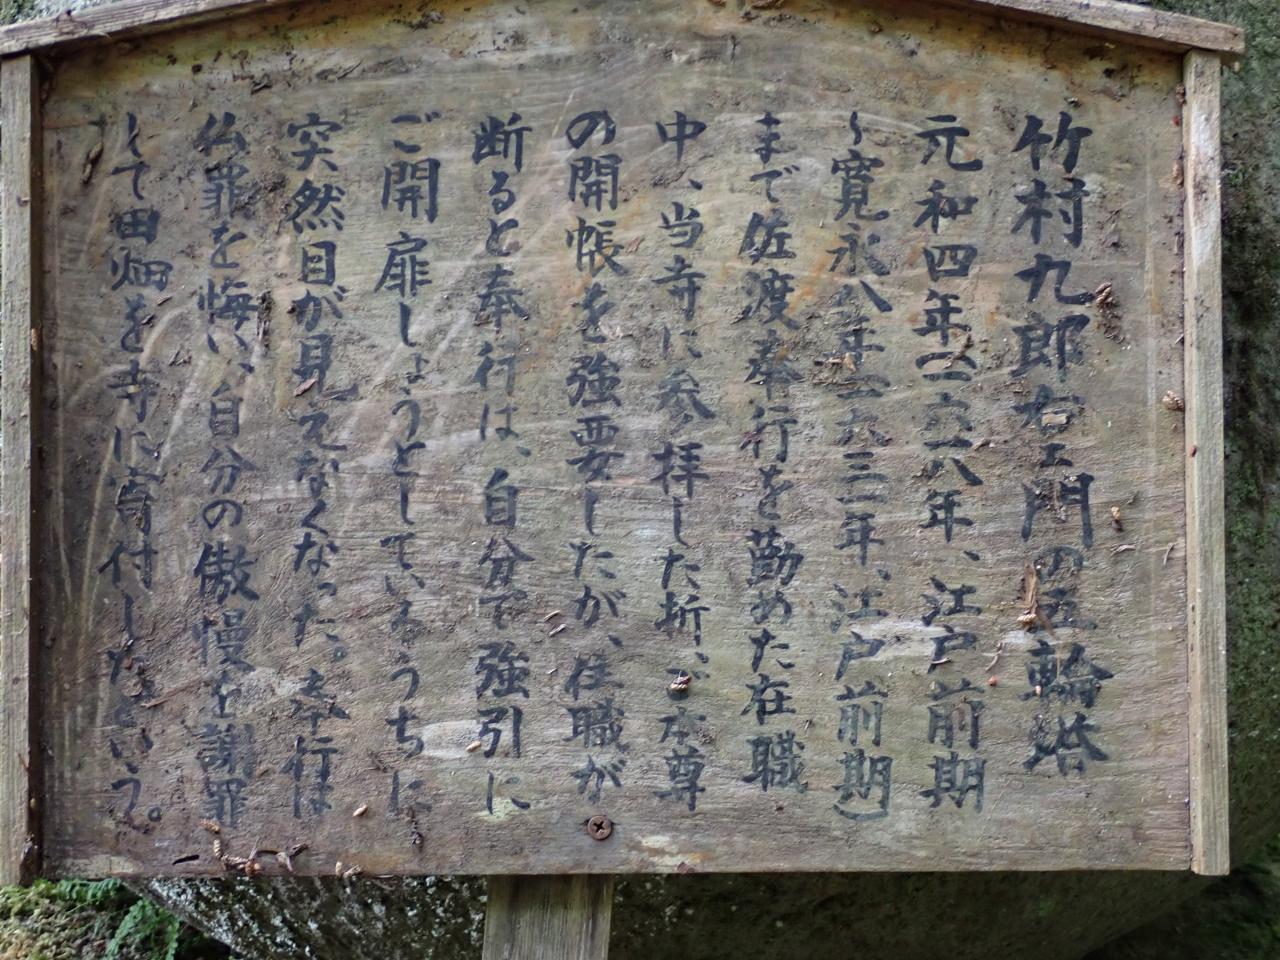 竹村九郎右ェ門の五輪塔
元和四年一六一八年、江戸前期
～寛永八年一六三一年、江戸前期)
まで佐渡奉行を勤めた在職
中、当寺に参拝した折、ご本尊
の開帳を強要したが、住職が
断ると奉行は、自分で強引に
ご開扉しようとしているうちに
突然目が見えなくなった。奉行は
仏罪を悔い、自分の傲慢を謝罪
して田畑を寺に寄付したという。